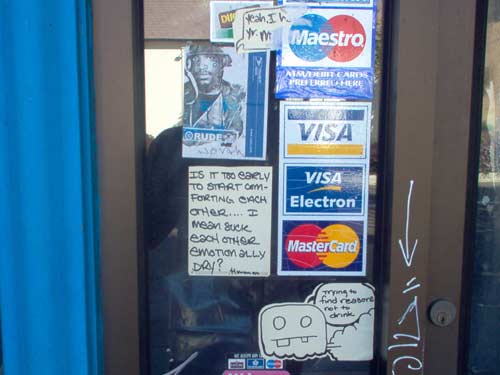 Yeah, I h
Maestro
ATM/DEBIT CARDS
PREFERRED HERE
RUDE
VISA
VISA
Electron
MasterCard
IS IT TOO EARLY
TO START COM-
FORTING EACH
OTHER.... I
MEAN SUCK
EACH OTHER
EMOTIONALLY
DRY?
Trying to
find reasons
not to
drink
WE ACCEPT